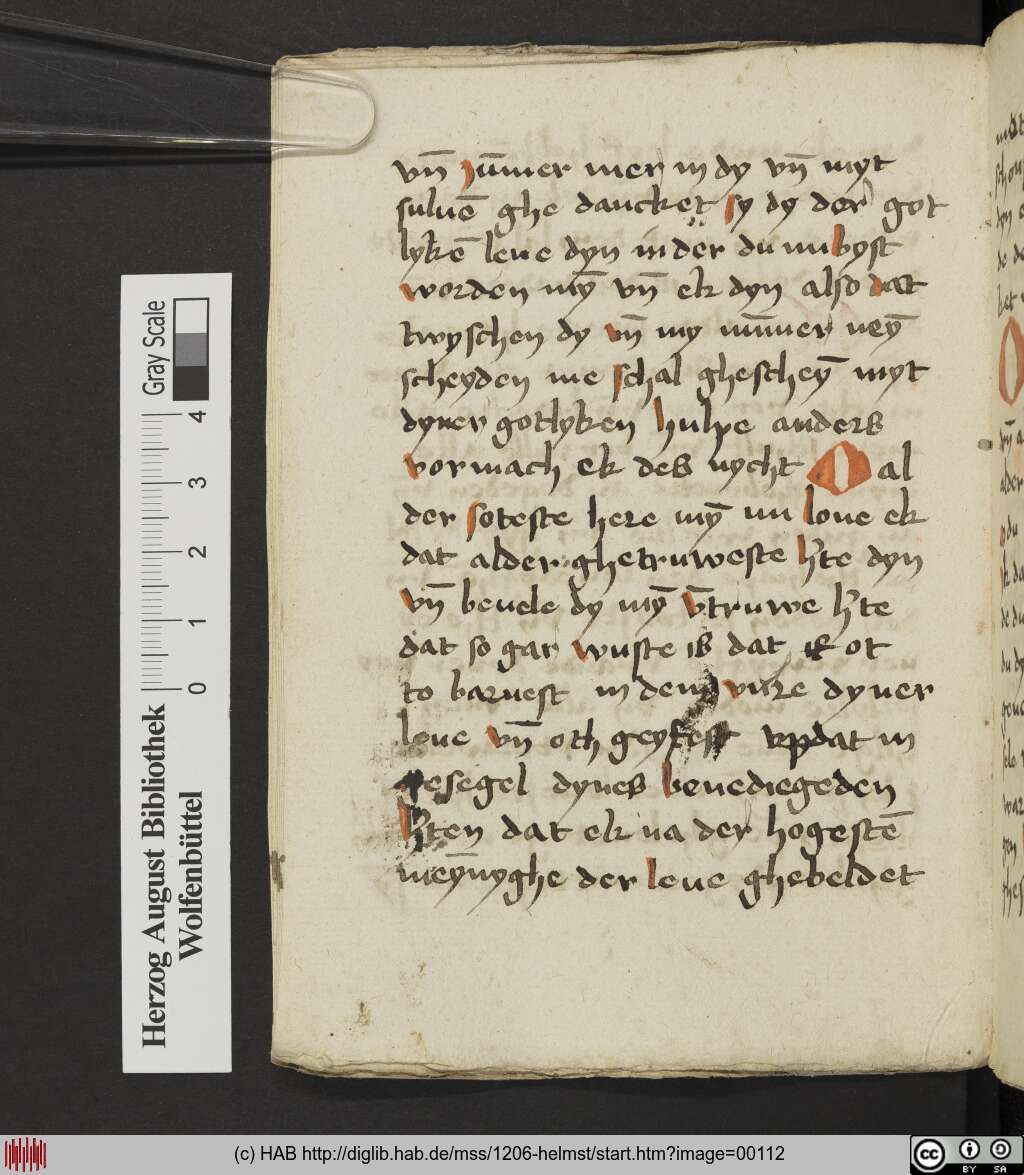 vn̄ ȷūmer mer in dy vn̄ myt
suluē ghe dancket sy dy der got
lykē leue dyn in der du nu byst
worden mȳ vn̄ ek dyn also dat
twyschen dy vn̄ my nūmer neȳ
scheyden me schal ghescheȳ myt
dyner gotlyken hulpe anders
vormach ek des nycht O al
der soteste here mȳ nu loue ek
dat alder ghetruweste h'te dyn
vn̄ beuele dy mȳ v̄truwe h'te
dat so gar wuste is dat it ot
to barnest in dem vure dyner
loue vn̄ oth geyfest vpdat in
gesegel dynes benediegeden
h'ten dat ek na der hogestē
meȳnyghe der leue ghebeldet
Gray Scale
0 1 2 3 4
Herzog August Bibliothek
Wolfenbüttel
(c) HAB http://diglib.hab.de/mss/1206-helmst/start.htm?image=00112
cc BY SA